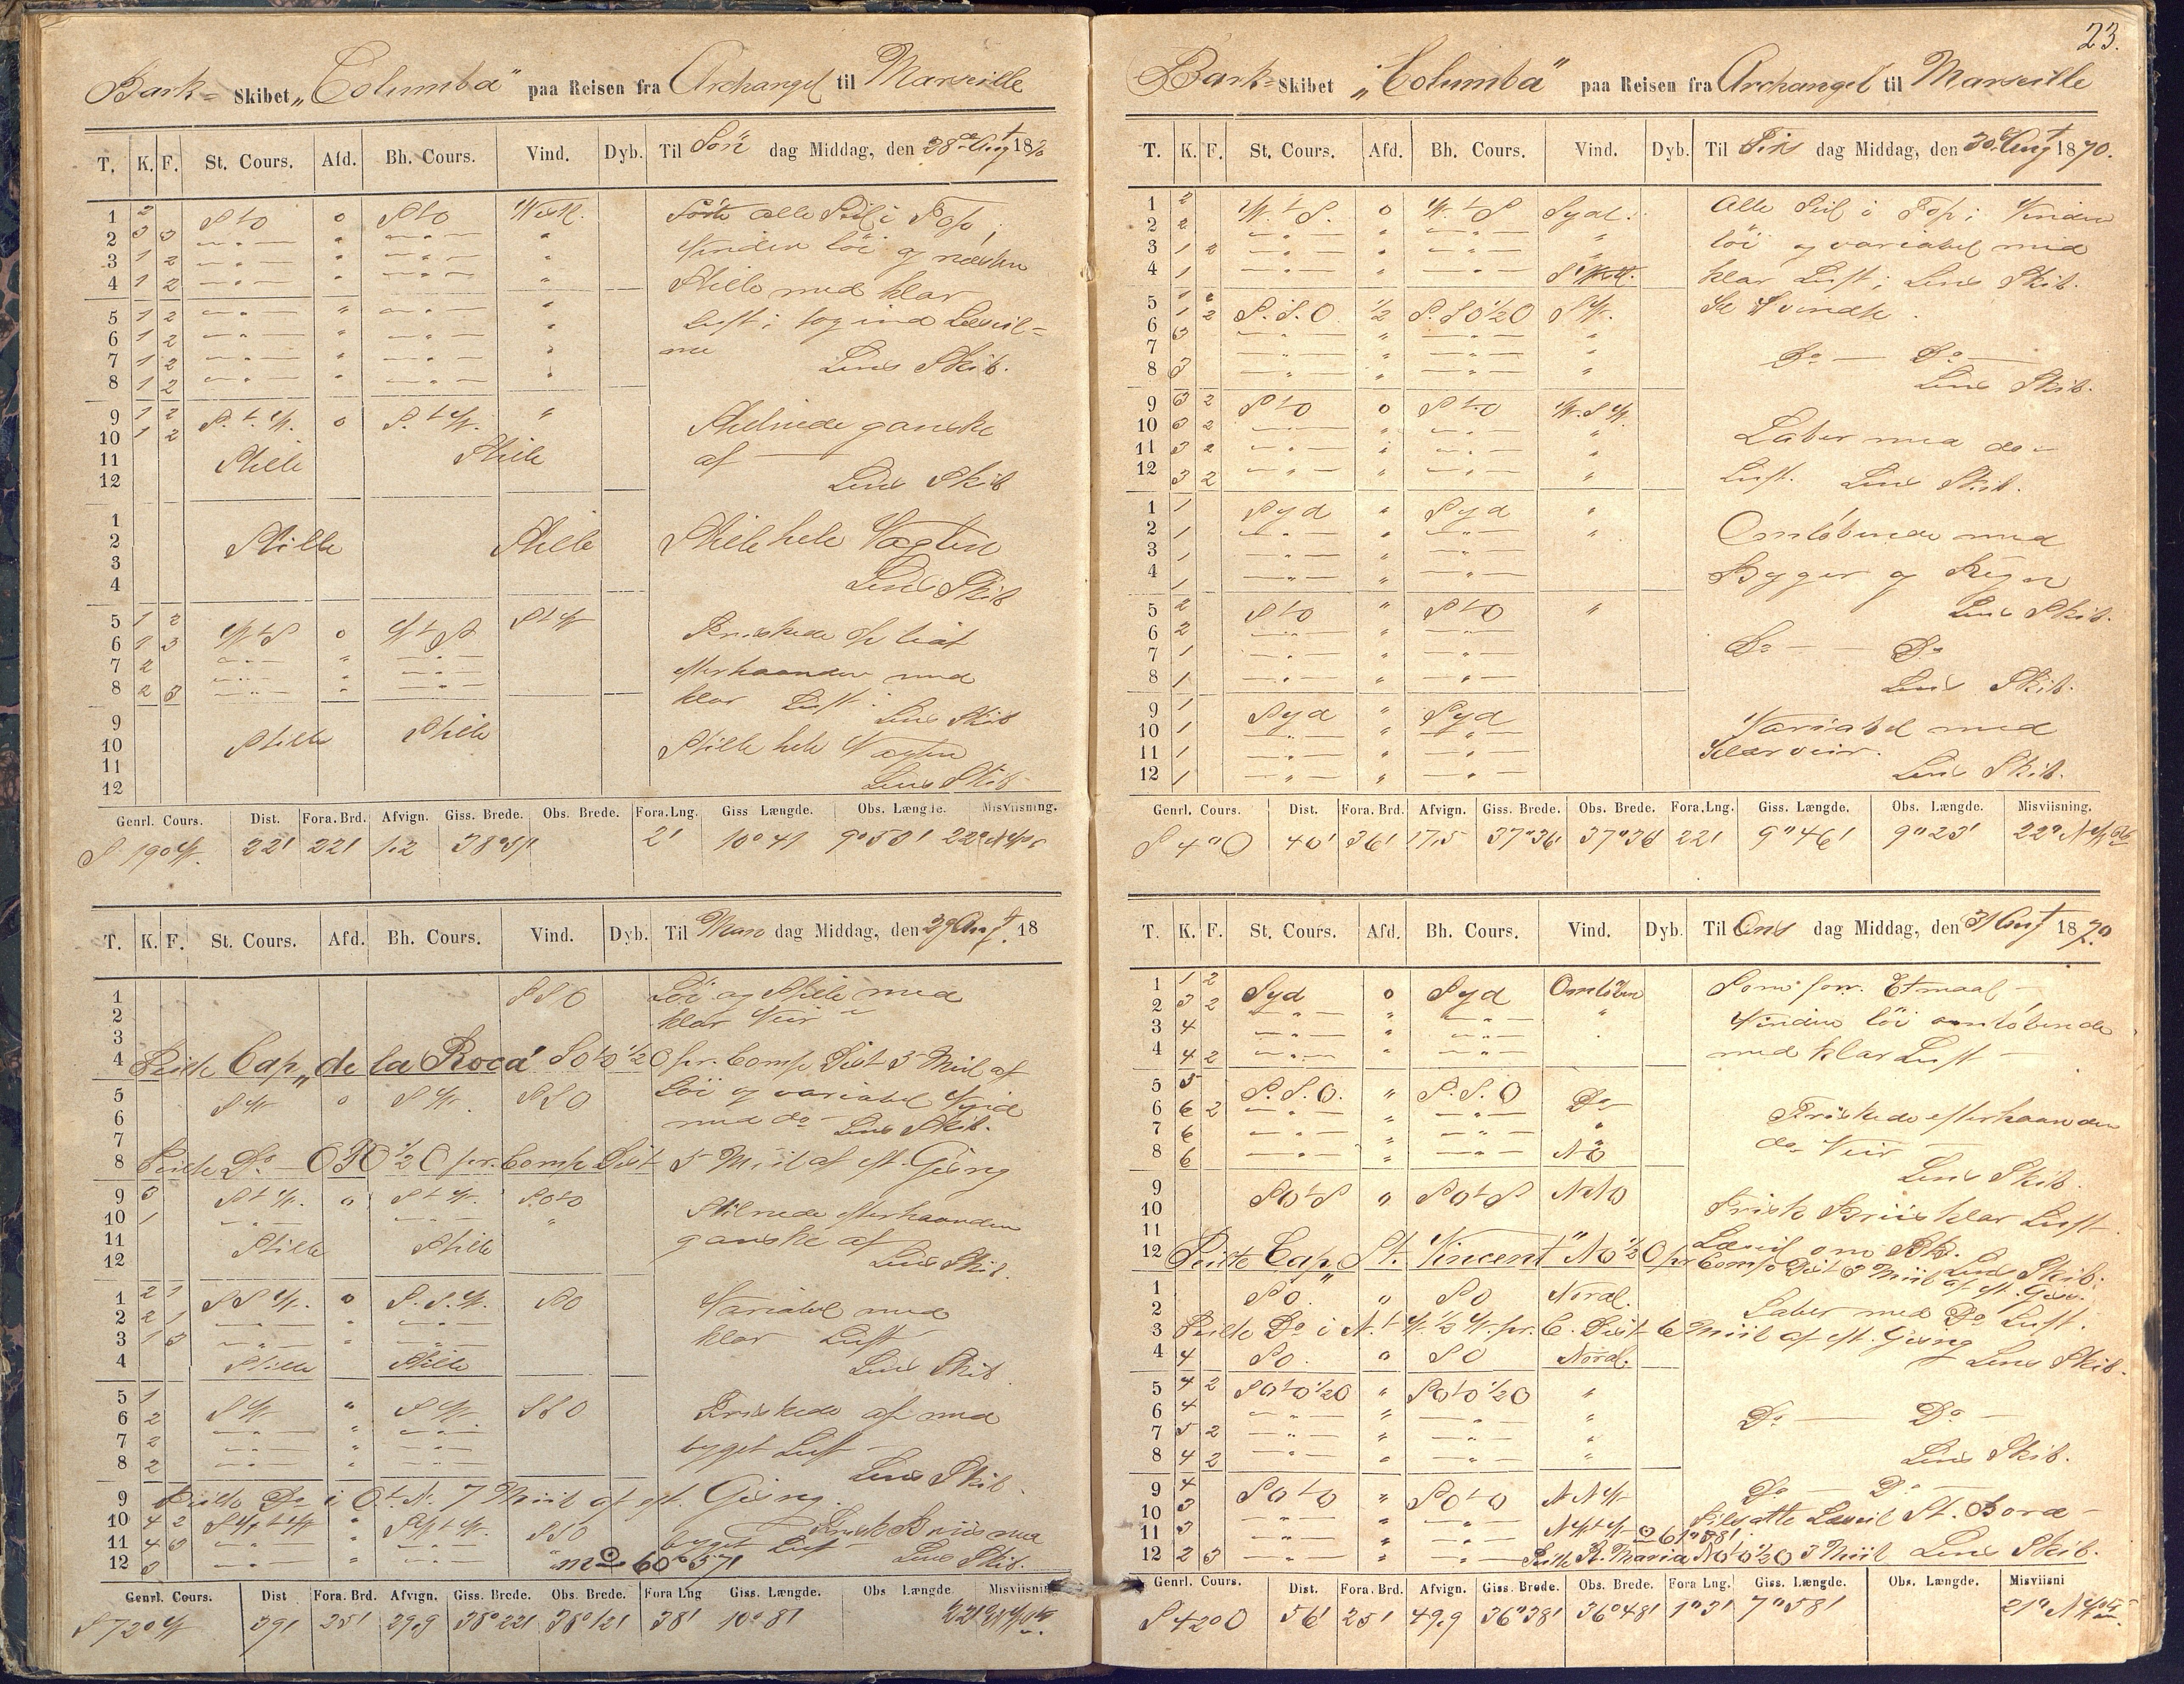 Bark- Skibet „Columba" paa Reisen fra Archangel til Marseille
T. K. F. St. Cours. Afd. Bh. Cours. Vind. Dyb. Til Søn dag Middag, den 28de Augt 1870
1 2 StO 0 StO Westl. alle Seil i Top;
2 3 3 Vinden löi og næsten
3 1 2
4 1 2 Stille med klar
5 1 2 Luft; tog ind Læseil-
6 1 2 ne
7 1 2 Lens Skib.
8 1 2
9 1 2 S.t.W. 0 S.tW. " Stilnede ganske
10 1 2 af
11 Stille Stille
12 Lens Skib
1
2 Stille Stille Stille hele Vagten
3
4 Lens Skib
5 1 2 WtS 0 WtS StW
6 1 3 Friskede
7 2 efterhaanden med
8 2 3 klar Luft. Lens Skib
9
10 Stille Stille Stille hele Vagten
11
12 Lens Skib
Genrl. Cours. Dist. Fora. Brd. Afvign. Giss. Brede. Obs. Brede. Fora.Lng. Giss Længde. Obs. Længde. Misviisning.
S 19°W. 22' 22' 2' 10°41 9°53' 22°
T. K. F. St. Cours. Afd. Bh. Cours. Vind. Dyb. Til Man dag Middag, den 29 Augt 18
1 SSO Löi og Stille med
2 klar Veir
3
4 Peilte Cap „de la Roca" pr. Comp. Dist 5 Miil af
5 SW 0 SW. SSO Löi og variabel Vind
6 med do Lens Skib.
7
8 Peilte Do pr. Comp Dist 5 Miil af eft. Gisng
9 3 StW. 0 StW. SOtO Stilnede efterhaanden
10 1 ganske af
11 Stille Stille
12 Lens Skib.
1 2 1 SSW. 0 S.S.W. SO Variabel med
2 2 1
3 1 3 klar Luft
4 Stille Stille Lens Skib.
5 1 SW " SW. SSO Friskede af med
6 2
7 2 byget Luft
8 2 Lens Skib.
9 Peilte Do i OtN. 7 Miil af eft. Gisng.
10 4 2 SWtW " SWtW. SSO Frisk Briis med
11 4 3 byget Luft
12 3 60°57' Lens Skib.
Genrl. Cours. Dist Fora. Brd. Afvign. Giss. Brede. Obs. Brede. Fora Lng Giss. Længde. Obs Længde Misviisning
S 72°W 39' 25' 29,9 38°22' 38°12' 38' 10°8'
23.
Bark- Skibet „Columba" paa Reisen fra Archangel til Marseille
T. K. F. St. Cours. Afd. Bh. Cours. Vind. Dyb. Til Tirs dag Middag, den 30 Augt 1870.
1 2 W.tS. 0 W.tS Syd. Alle Seil i Top; Vinden
2 2
3 1 2 löi og variabel med
4 1 klar Luft; Lens Skib.
5 1 S.S.O. 1/2 S.SO1/2O SW. Vendte
6 3
7 Do — Do
8 3 Lens Skib.
9 3 2 StO 0 StO W.S.W.
10 3 2 Laber med do
11 3 2
12 3 2 Luft. Lens Skib.
1 1 Syd " Syd "
2 1 Omløbende med
3 1
4 1 Byger og Regn
5 2 StO " StO " Lens Skib.
6 2
7 1 Do — Do
8 1 Lens Skib.
9 1 Syd " Syd
10 1 Variabel med
11 1 Klar veir.
12 1 Lens Skib.
Genrl. Cours. Dist. Fora. Brd. Afvign. Giss. Brede. Obs. Brede. Fora.Lng. Giss. Længde. Obs. Længde. Misviisning.
40' 36' 17,5 37°36' 37°36 22' 9°46' 9°23' 22°
T. K. F. St. Cours. Afd. Bh. Cours. Vind. Dyb. Til Ons dag Middag, den 31 Augt 1870.
1 1 2 Syd 0 Syd Omløben Som forr. Etmaal
2 3 2
3 4 Vinden löi omløbende
4 4 2 med klar Luft
5 5 S.S.O. " S.S.O Do
6 6 2 Friskede efterhaanden
7 6 do Veir
8 6 NO Lens Skib.
9 SOtS " SOtS NNO
10 Frisk Briis klar Luft
11 Læseil om Bb. Lens Skib.
12 Peilte Cap „St. Vincent" NO1/2O pr Comp Dist 3 Miil af eft. Gisn.
1 SO. " SO Nordl.
2 Laber med Do Luft.
3 Peilte Do i N.tW.1/2W. pr. C. Dist 6 Miil af eft. Gisng
4 4 SO. " SO Nordl. Lens Skib.
5 4 2 SOtO1/2O " SOtO1/2O "
6 4 Do — Do
7 5 2
8 4 2 Lens Skib.
9 4 SOtO " SOtO NNW Do — Do
10 3 Læseil St. Bord
11 3 NWtW
12 2 3 Peilte St. Maria 3 Miil Lens Skib.
Genrl. Cours. Dist. Fora. Brd. Afvign. Giss. Brede. Obs. Brede. Fora Lng. Giss. Længde. Obs. Længde. Misviisni
S 42°O 56' 25' 49,9 36°38' 36°48' 1°3' 7°58' 21°